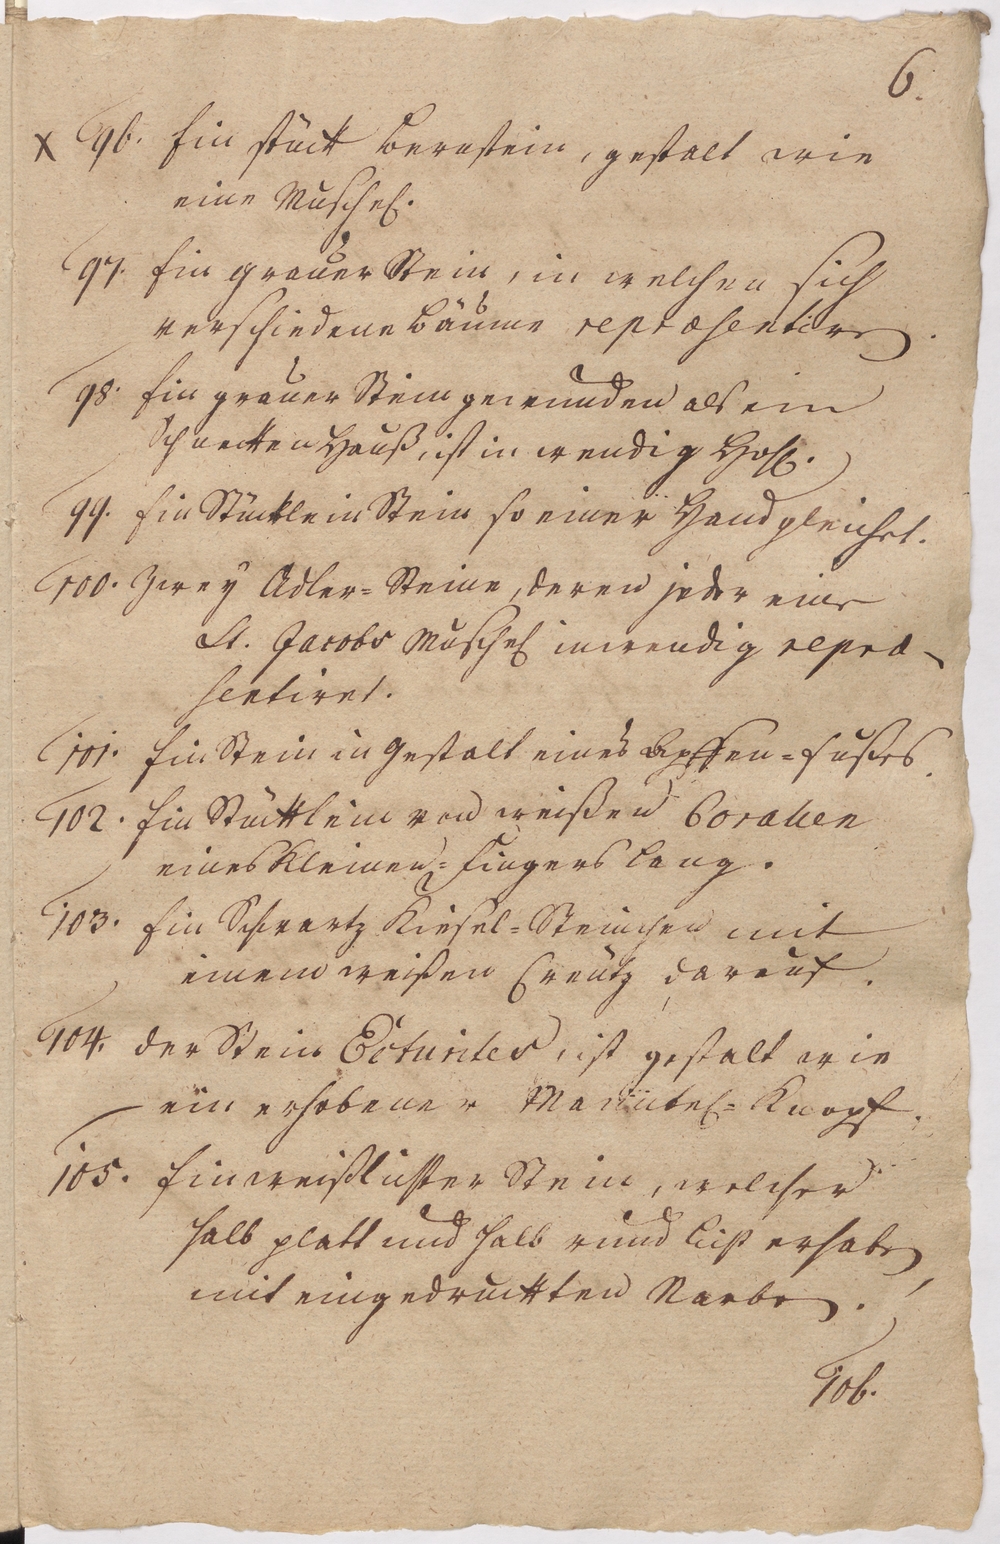 6.
x 96. Ein stück bernstein, gestalt wie
eine Muschel.
97. Ein grauer Stein, in welchen sich
verschiedene bäume repræsentiren.
98. Ein grauer Stein gewunden als ein
Schnecken Hauß, ist inwendig Hohl.
99. Ein Stücklein Stein so einer Hand gleichet.
100. Zwey Adler=Steine, deren jeder eine
St. Jacobs Muschel inwendig repræ-
sentiret.
101. Ein Stein in gestalt eines Apffen=fußes.
102. Ein Stücklein von weißen Corallen
eines Kleinen=fingers lang.
103. Ein Schwartz Kiesel=Steinchen mit
einem weißen Creutz darauf.
104. der Stein, ist gestalt wie
ein erhobener Mantel=Knopf.
105. Ein weißlichter Stein, welcher
halb platt und halb rund licht erhaben
mit eingedruckten Narben.
106.